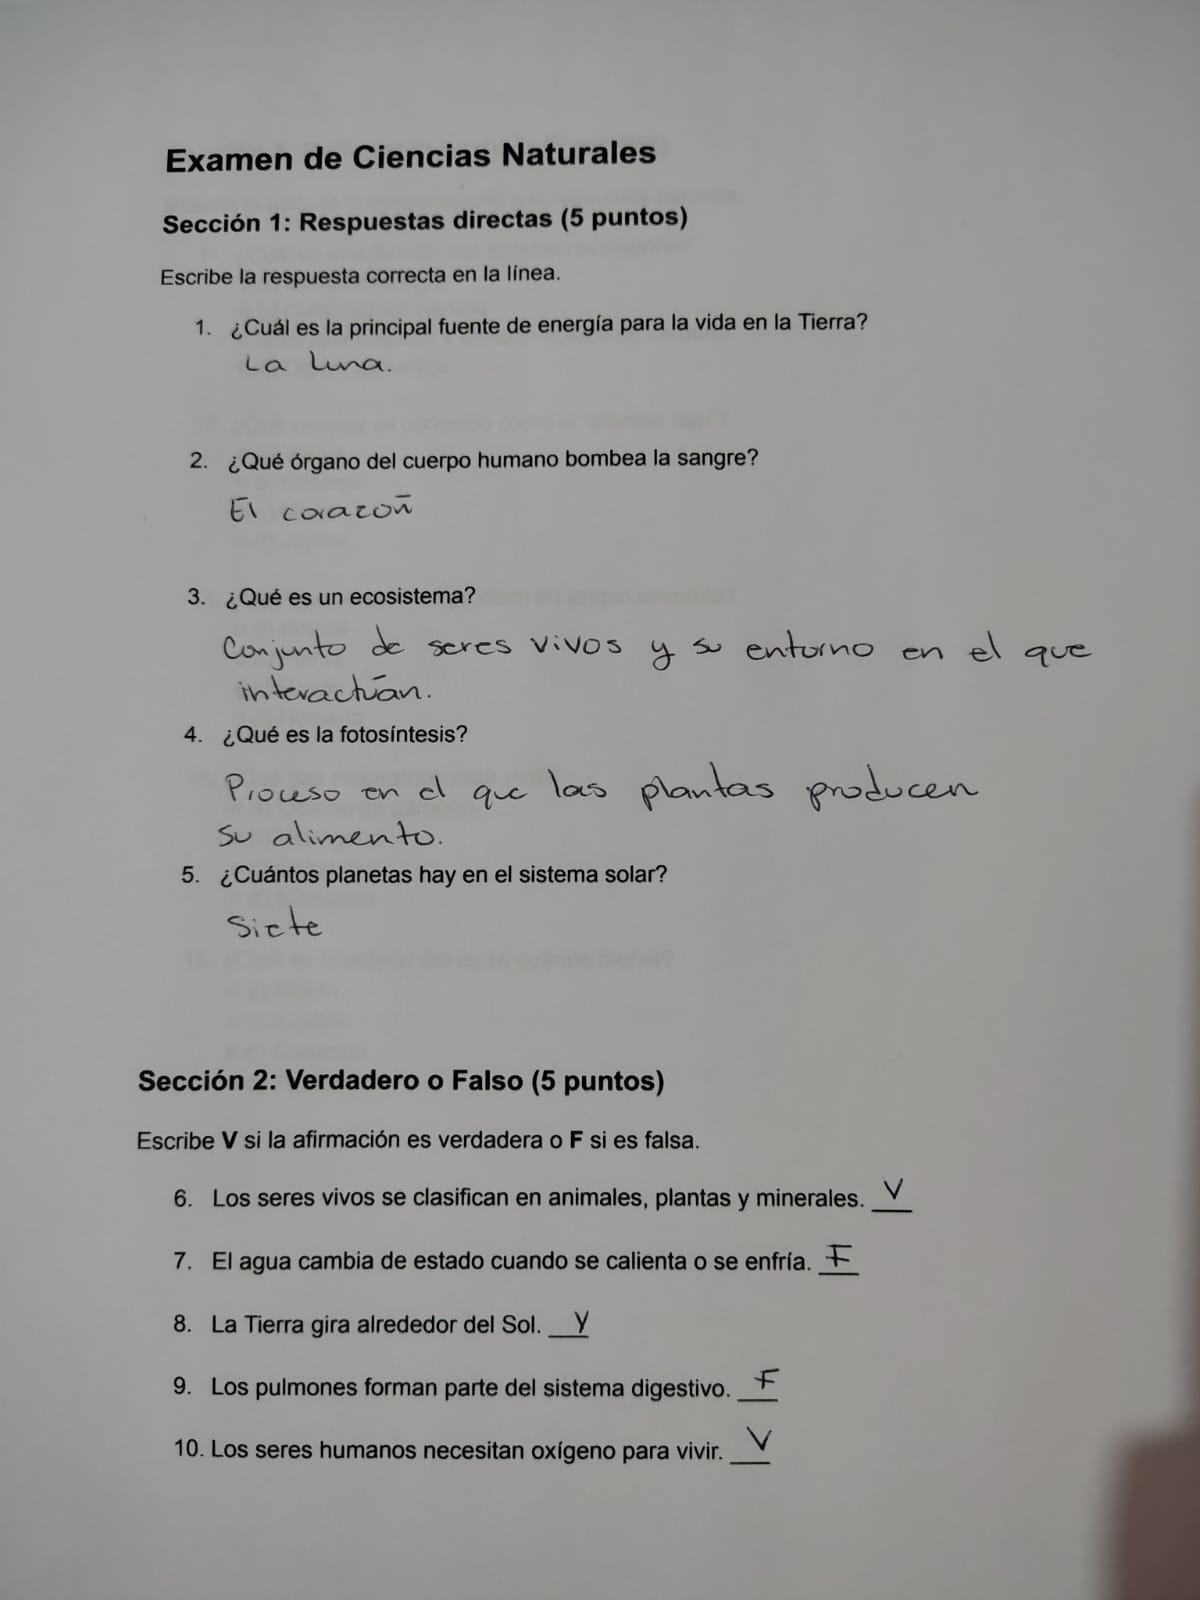 Examen de Ciencias Naturales
Sección 1: Respuestas directas (5 puntos)
Escribe la respuesta correcta en la línea.
1. ¿Cuál es la principal fuente de energía para la vida en la Tierra?
La luna.
2. ¿Qué órgano del cuerpo humano bombea la sangre?
El corazón
3. ¿Qué es un ecosistema?
Conjunto de seres vivos y su entorno en el que
interactúan.
4. ¿Qué es la fotosíntesis?
Proceso en el que las plantas producen
su alimento.
5. ¿Cuántos planetas hay en el sistema solar?
Siete
Sección 2: Verdadero o Falso (5 puntos)
Escribe V si la afirmación es verdadera o F si es falsa.
6. Los seres vivos se clasifican en animales, plantas y minerales. V
7. El agua cambia de estado cuando se calienta o se enfría. F
8. La Tierra gira alrededor del Sol. V
9. Los pulmones forman parte del sistema digestivo. F
10. Los seres humanos necesitan oxígeno para vivir. V